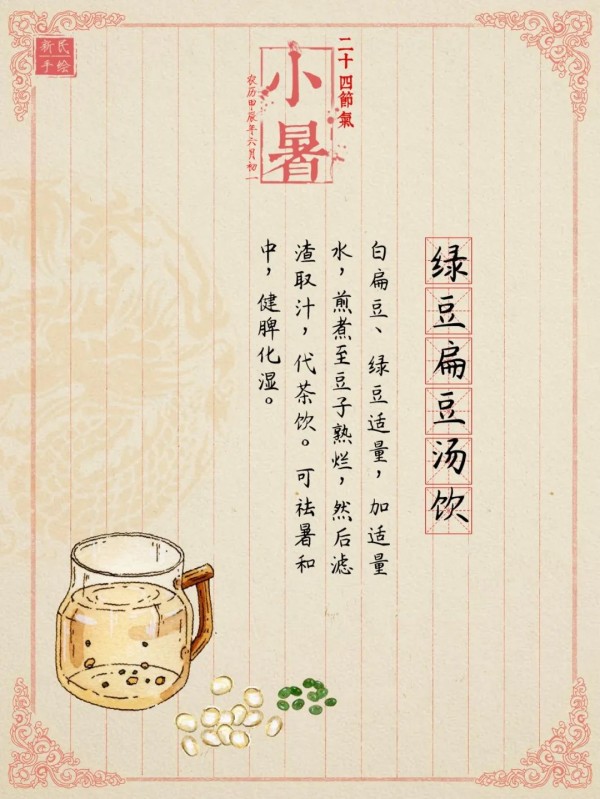 新民
手绘
二十四節氣
小暑
农历甲辰年六月初一
绿豆扁豆汤饮
白扁豆、绿豆适量，加适量
水，煎煮至豆子熟烂，然后滤
渣取汁，代茶饮。可祛暑和
中，健脾化湿。